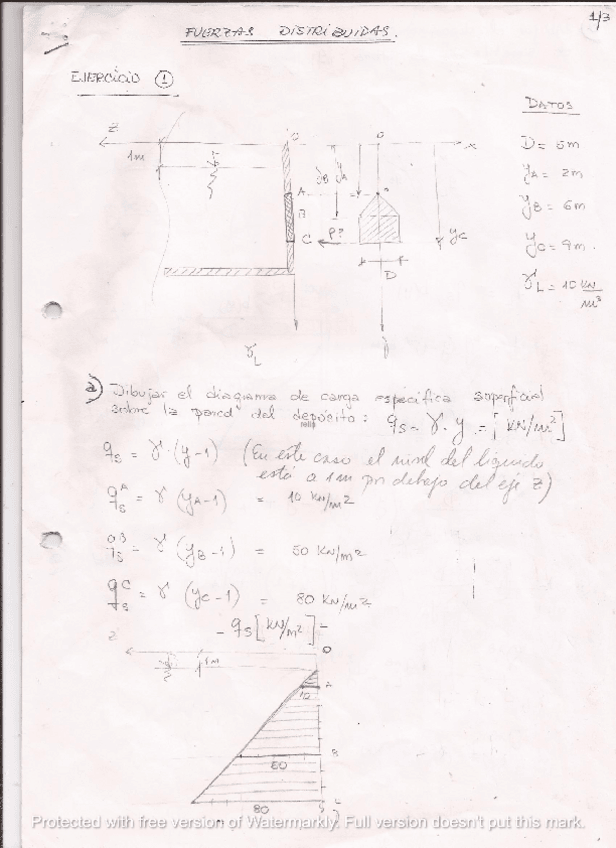 1/3
FUERZAS DISTRIBUIDAS.
EJERCICIO 1
DATOS
D = 5m
yA = 2m
yB = 6m
yC = 9m
γL = 10 KN/m³
Z
O
O
X
1m
yB
yA
A
B
C
P?
yC
D
γL
a) Dibujar el diagrama de carga específica superficial
sobre la pared del depósito: qs = γ · y = [KN/m²]
qs = γ · (y-1) (En este caso el nivel del líquido
está a 1m por debajo del eje Z)
qsA = γ (yA-1) = 10 KN/m²
qsB = γ (yB-1) = 50 KN/m²
qsC = γ (yC-1) = 80 KN/m²
- qs [KN/m²]
Z
O
1m
10
80
Protected with free version of Watermarkly. Full version doesn't put this mark.